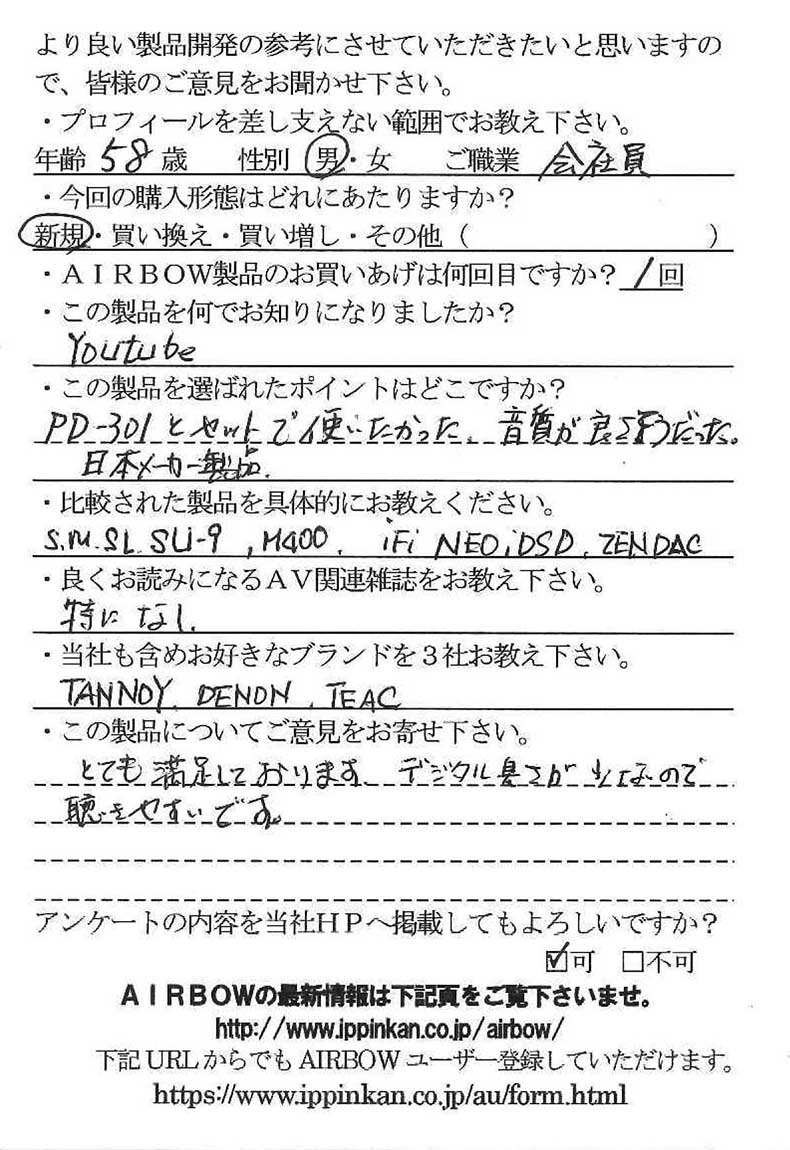 より良い製品開発の参考にさせていただきたいと思いますの
で、皆様のご意見をお聞かせ下さい。
・プロフィールを差し支えない範囲でお教え下さい。
年齢 58 歳 性別 男・女 ご職業 会社員
・今回の購入形態はどれにあたりますか?
新規・買い換え・買い増し・その他 ( )
・AIRBOW製品のお買いあげは何回目ですか? 1回
・この製品を何でお知りになりましたか?
Youtube
・この製品を選ばれたポイントはどこですか?
PD-301とセットで使いたかった、音質が良さそうだった。
日本メーカー製品.
・比較された製品を具体的にお教えください。
S.M.SL SU-9, M400, iFi NEO iDSD, ZENDAC
・良くお読みになるAV関連雑誌をお教え下さい。
特になし.
・当社も含めお好きなブランドを3社お教え下さい。
TANNOY, DENON, TEAC
・この製品についてご意見をお寄せ下さい。
とても満足しております、デジタル臭さが少ないので
聴きやすいです。
アンケートの内容を当社HPへ掲載してもよろしいですか?
☑可 □不可
AIRBOWの最新情報は下記頁をご覧下さいませ。
http://www.ippinkan.co.jp/airbow/
下記URLからでもAIRBOWユーザー登録していただけます。
https://www.ippinkan.co.jp/au/form.html